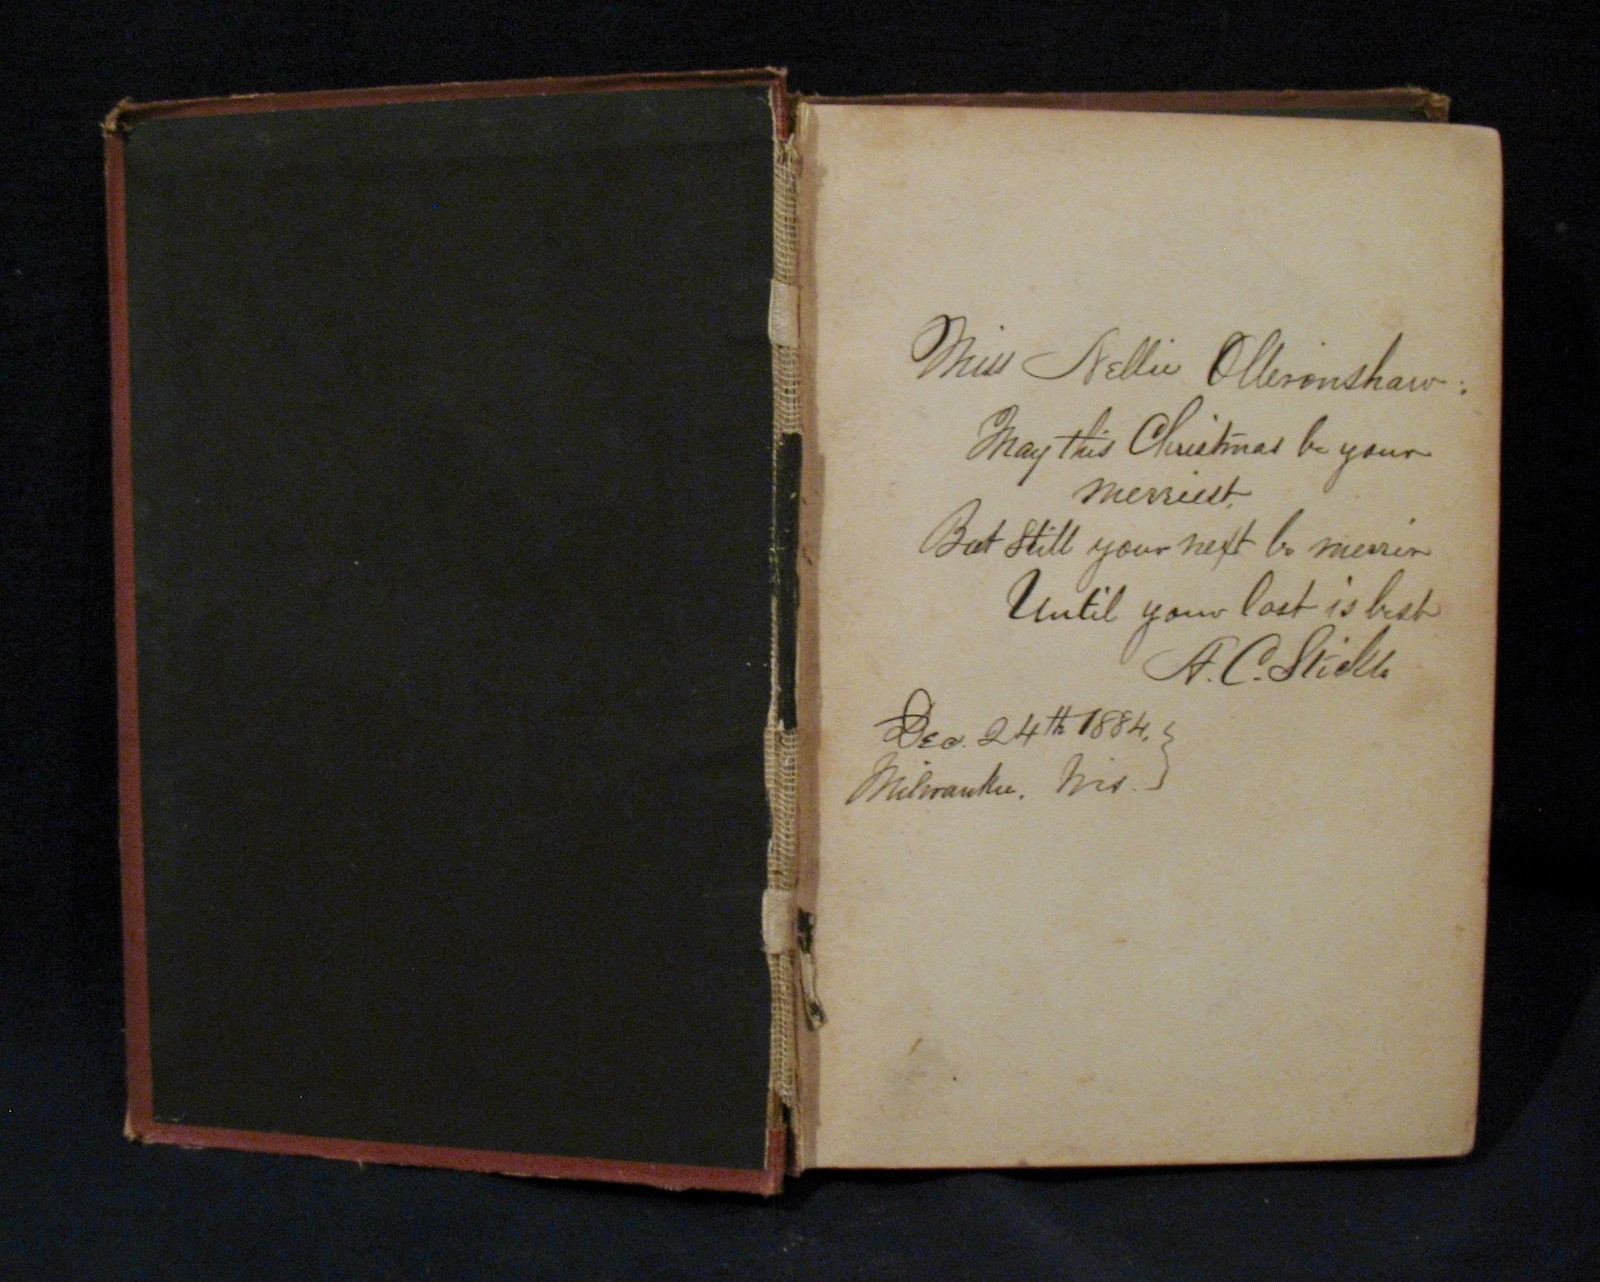 Miss Nellie Ollerenshaw:
May this Christmas be your
merriest,
But still your next be merrier
Until your last is best
A. C. Stickle
Dec. 24th 1884.
Milwaukee, Wis.